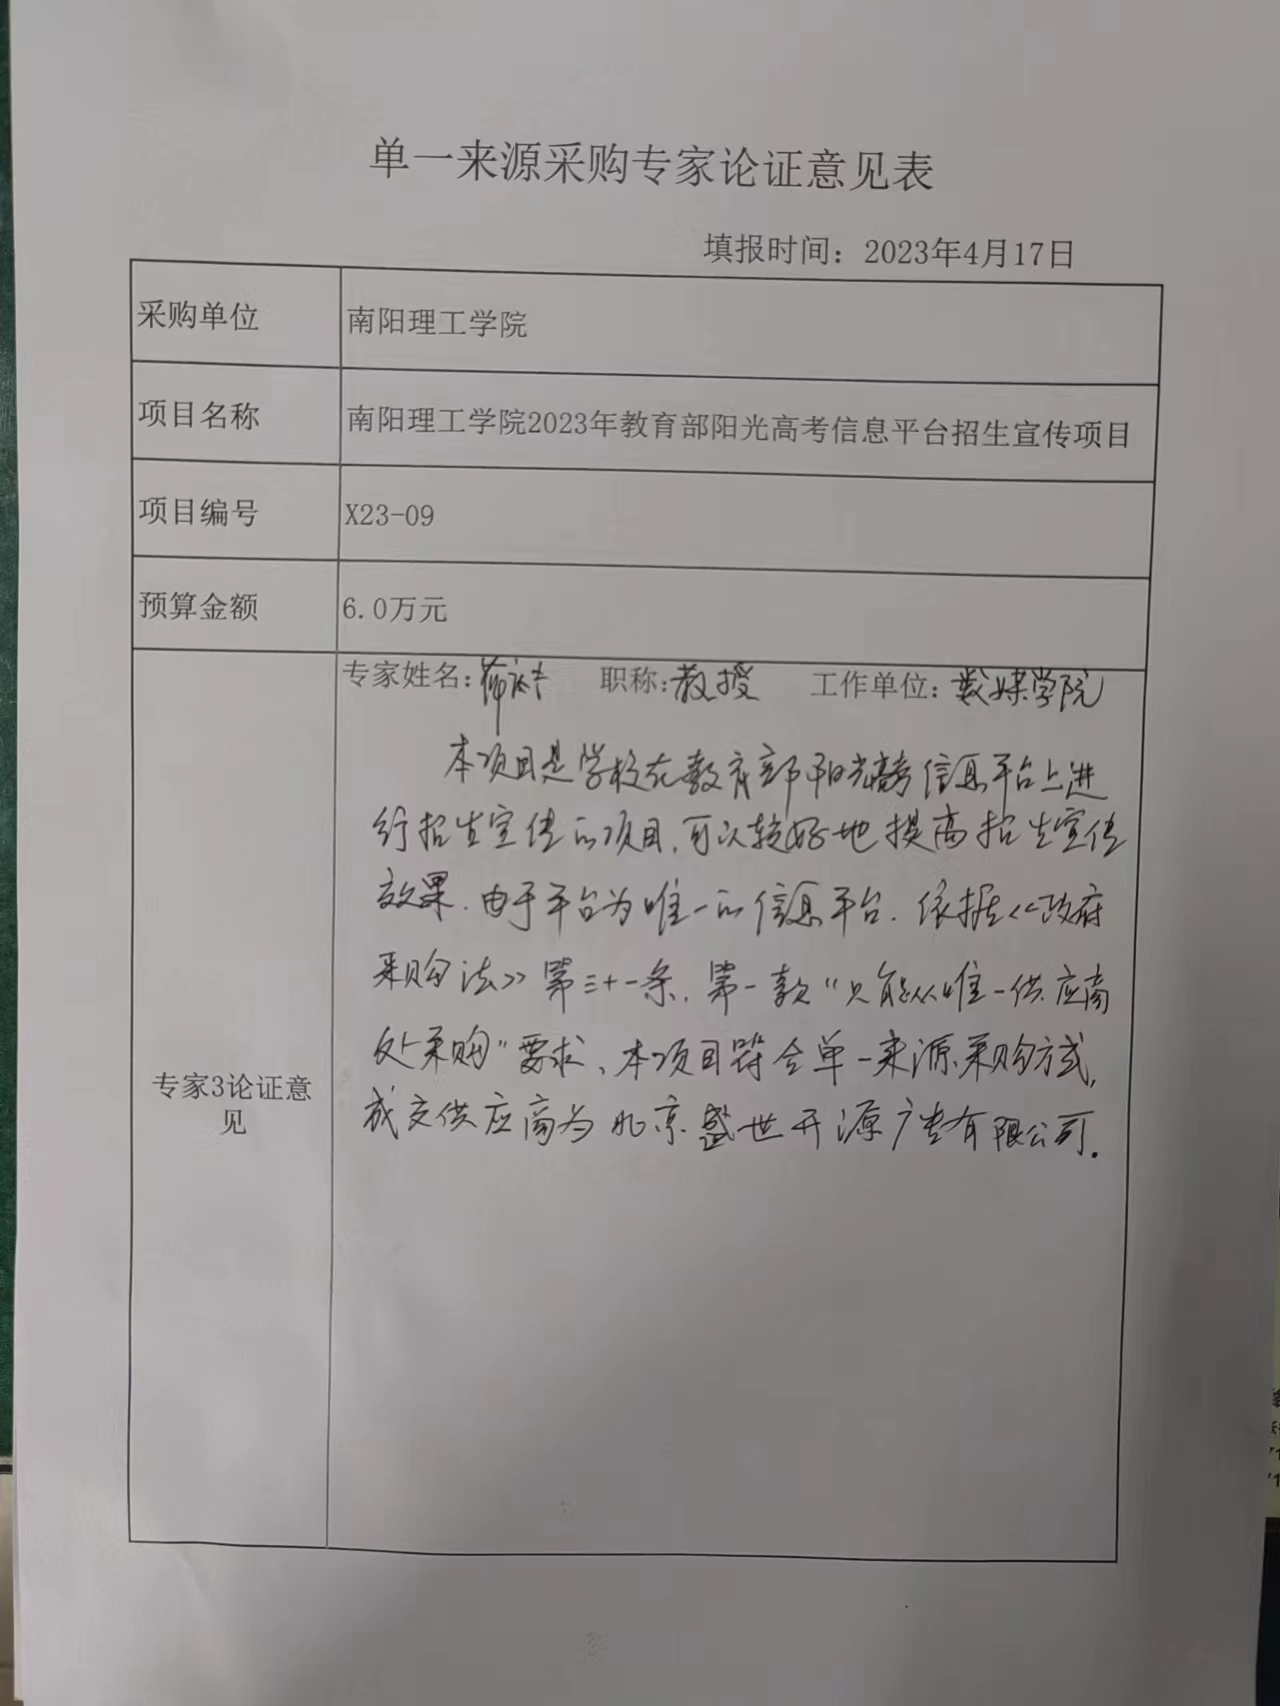 单一来源采购专家论证意见表
填报时间：2023年4月17日
采购单位 南阳理工学院
项目名称 南阳理工学院2023年教育部阳光高考信息平台招生宣传项目
项目编号 X23-09
预算金额 6.0万元
专家姓名： 职称：教授 工作单位：传媒学院
本项目是学校在教育部阳光高考信息平台上进
行招生宣传的项目，可以较好地提高招生宣传
效果．由于平台为唯一的信息平台．依据《政府
采购法》第三十一条，第一款“只能从唯一供应商
处采购”要求、本项目符合单一来源采购方式，
成交供应商为北京盛世开源广告有限公司．
专家3论证意
见